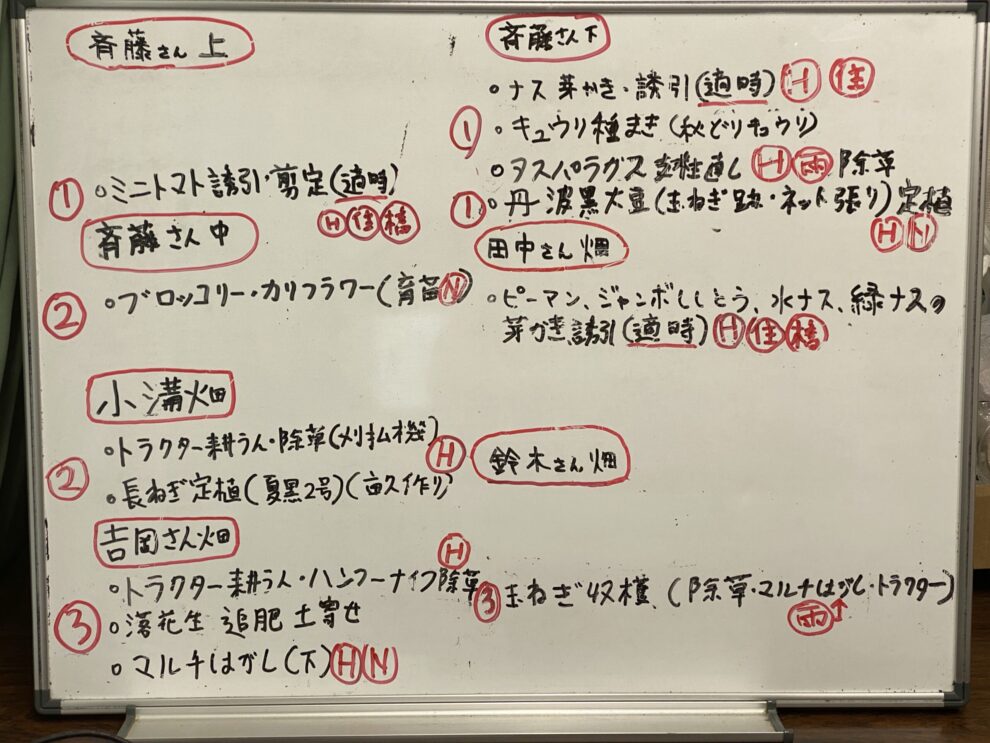 斉藤さん 上
① ○ミニトマト誘引・剪定(適時)
Ⓗ 住 橋
斉藤さん 中
② ○ブロッコリー・カリフラワー(育苗Ⓝ)
小溝畑
○トラクター耕うん・除草(刈払機) Ⓗ
② ○長ねぎ定植(夏黒2号)(畝作り)
吉岡さん畑
Ⓗ
○トラクター耕うん・ハンマーナイフ除草
③ ○落花生 追肥 土寄せ
○マルチはがし(下)ⒽⓃ
斉藤さん下
○ナス芽かき・誘引(適時) Ⓗ 住
① ○キュウリ種まき(秋どりキュウリ)
○アスパラガス 支柱直し Ⓗ 雨 除草
① ○丹波黒大豆(玉ねぎ跡・ネット張り)定植
ⒽⓃ
田中さん畑
○ピーマン、ジャンボししとう、水ナス、緑ナスの
芽かき誘引(適時) Ⓗ 住 橋
鈴木さん畑
③ 玉ねぎ収穫 (除草・マルチはがし・トラクター)
雨↑